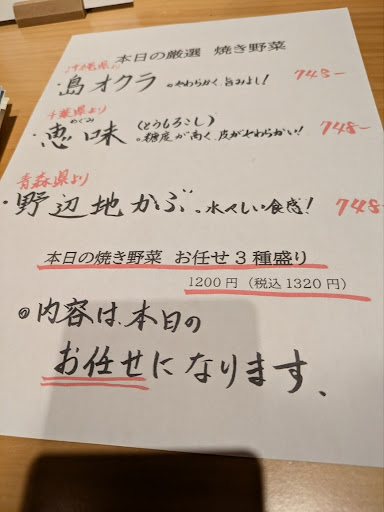 本日の厳選 焼き野菜
沖縄県より
・島オクラ 。やわらかく、旨みよし! 748-
千葉県より
めぐみ
・恵味(とうもろこし) 。糖度が高く、皮がやわらかい! 748-
青森県より
・野辺地かぶ 。水々しい食感! 748-
本日の焼き野菜 お任せ3種盛り
1200円(税込1320円)
◎内容は、本日の
お任せになります、